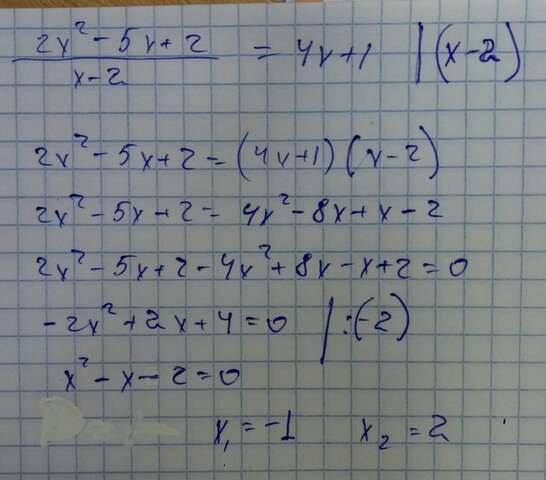 (2x² - 5x + 2)/(x - 2) = 4x + 1 | (x - 2)
2x² - 5x + 2 = (4x + 1)(x - 2)
2x² - 5x + 2 = 4x² - 8x + x - 2
2x² - 5x + 2 - 4x² + 8x - x + 2 = 0
-2x² + 2x + 4 = 0 | :(-2)
x² - x - 2 = 0
x₁ = -1 x₂ = 2